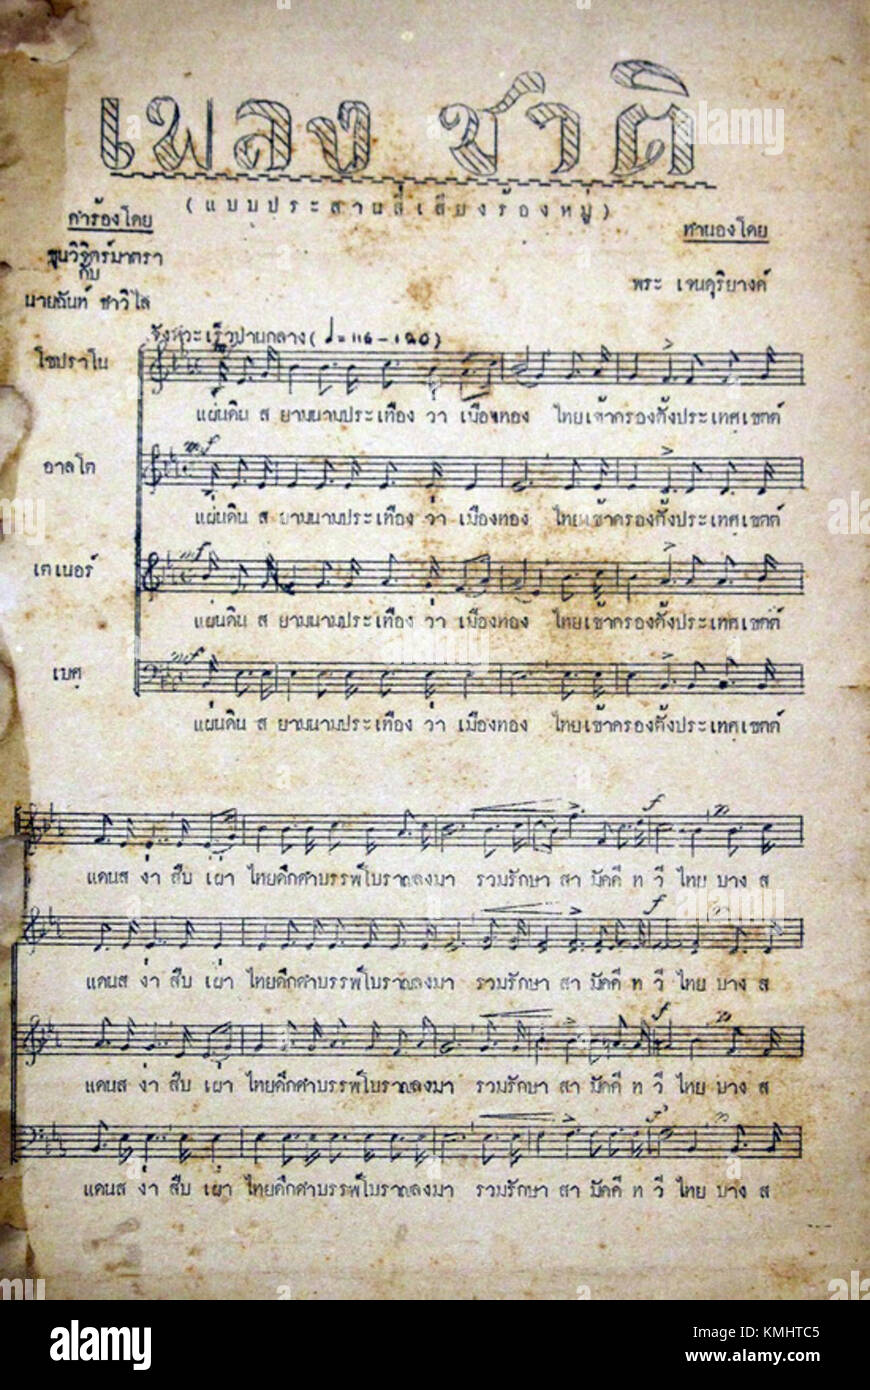 เพลง ชาติ
(แบบประสานสี่เสียงร้องหมู่)
คำร้องโดย
ทำนองโดย
ขุนวิจิตร์มาตรา
กับ
นายฉันท์ ขำวิไล
พระ เจนดุริยางค์
จังหวะเร็วปานกลาง (♩=116-120)
โซปราโน
แผ่นดิน ส ยามนามประเทือง ว่า เมืองทอง ไทยเข้าครองตั้งประเทศเขตต์
อาลโต
mf
แผ่นดิน ส ยามนามประเทือง ว่า เมืองทอง ไทยเข้าครองตั้งประเทศเขตต์
เตเนอร์
mf
แผ่นดิน ส ยามนามประเทือง ว่า เมืองทอง ไทยเข้าครองตั้งประเทศเขตต์
เบศ
mf
แผ่นดิน ส ยามนามประเทือง ว่า เมืองทอง ไทยเข้าครองตั้งประเทศเขตต์
f
แดนส ง่า สืบ เผ่า ไทยดึกดำบรรพ์โบราณลงมา รวมรักษา สา มัคคี ท วี ไทย บาง ส
f
แดนส ง่า สืบ เผ่า ไทยดึกดำบรรพ์โบราณลงมา รวมรักษา สา มัคคี ท วี ไทย บาง ส
f
แดนส ง่า สืบ เผ่า ไทยดึกดำบรรพ์โบราณลงมา รวมรักษา สา มัคคี ท วี ไทย บาง ส
f
แดนส ง่า สืบ เผ่า ไทยดึกดำบรรพ์โบราณลงมา รวมรักษา สา มัคคี ท วี ไทย บาง ส
alamy
alamy
Image ID: KMHTC5
www.alamy.com